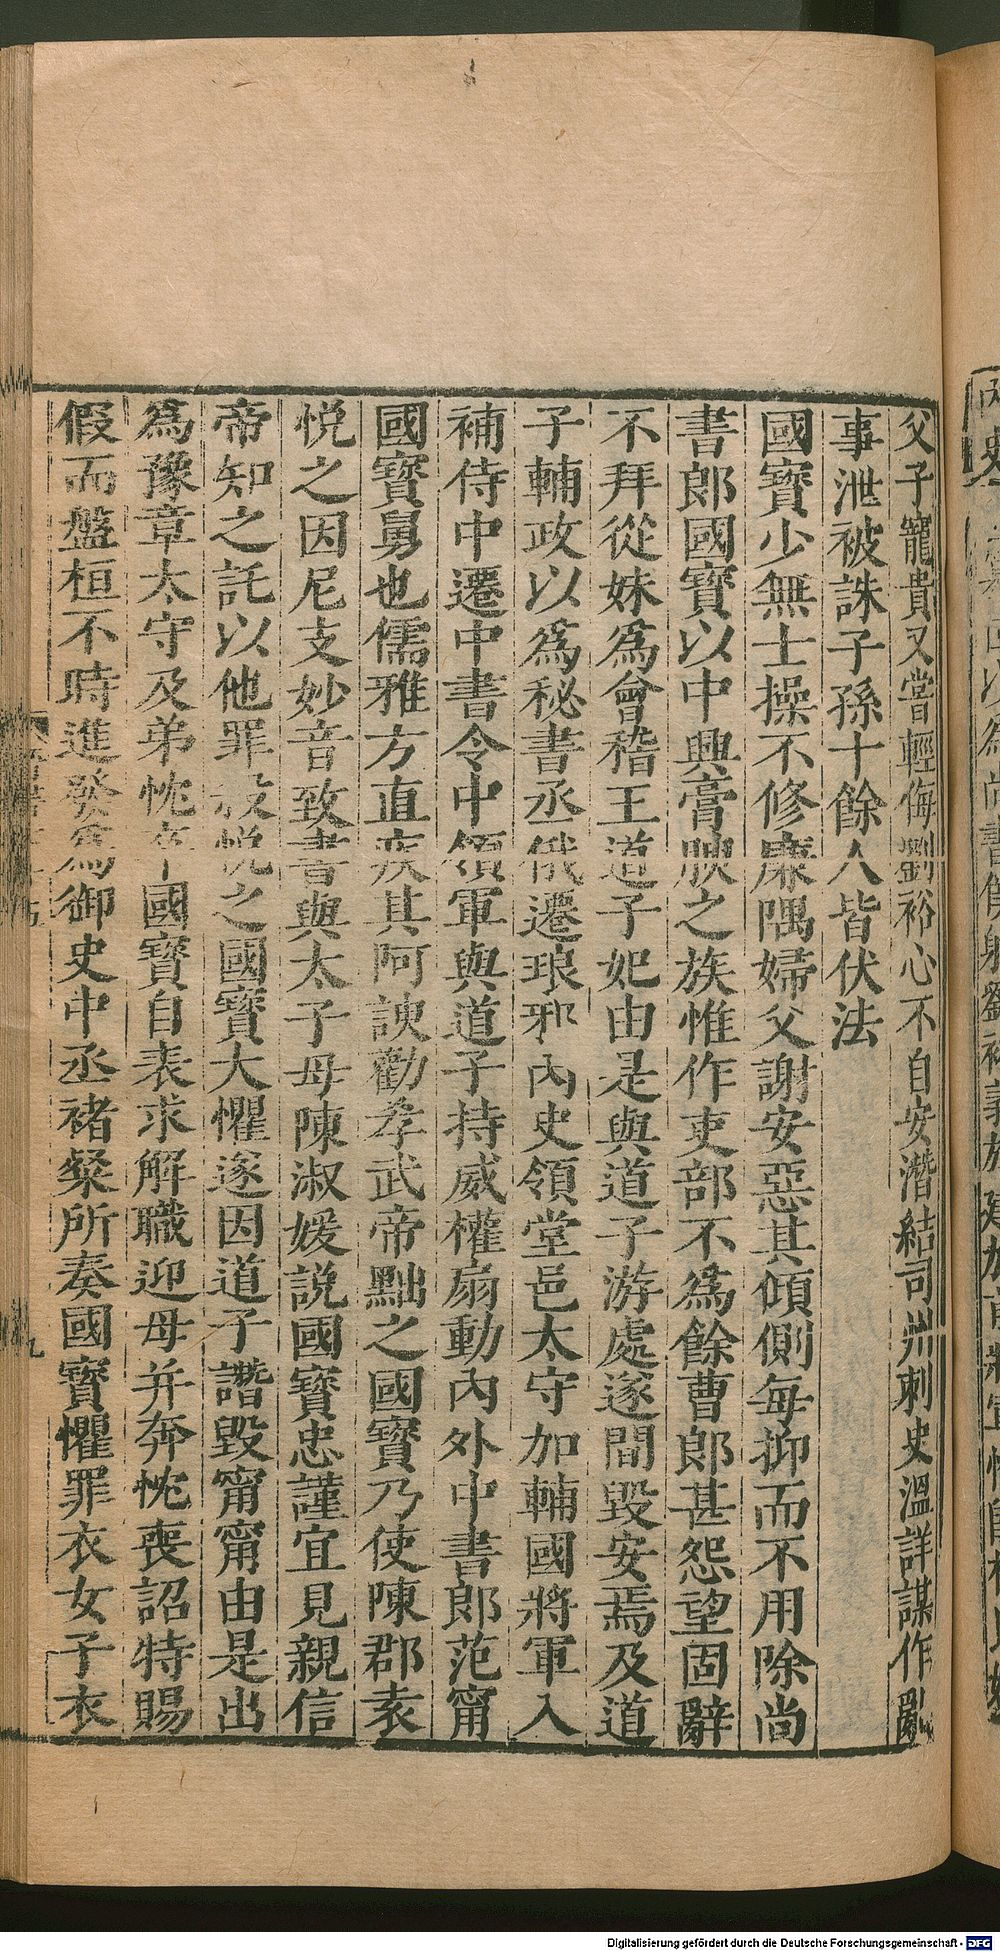 父子寵貴又嘗輕侮劉裕心不自安潛結司州刺史溫詳謀作亂
事泄被誅子孫十餘人皆伏法
國寶少無士操不修廉隅婦父謝安惡其傾側每抑而不用除尚
書郎國寶以中興膏腴之族惟作吏部不為餘曹郎甚怨望固辭
不拜從妹為會稽王道子妃由是與道子游處遂間毀安焉及道
子輔政以為秘書丞俄遷琅邪內史領堂邑太守加輔國將軍入
補侍中遷中書令中領軍與道子持威權扇動內外中書郎范甯
國寶舅也儒雅方直疾其阿諛勸孝武帝黜之國寶乃使陳郡袁
悅之因尼支妙音致書與太子母陳淑媛說國寶忠謹宜見親信
帝知之託以他罪殺悅之國寶大懼遂因道子譖毀甯甯由是出
為豫章太守及弟忱卒國寶自表求解職迎母并奔忱喪詔特賜
假而盤桓不時進發為御史中丞褚粲所奏國寶懼罪衣女子衣
九
Digitalisierung gefördert durch die Deutsche Forschungsgemeinschaft - DFG